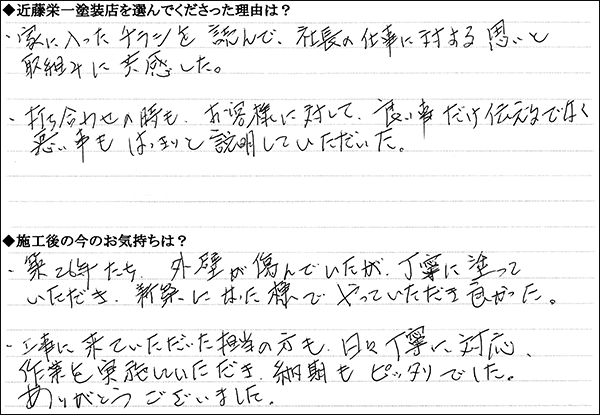 ◆近藤栄一塗装店を選んでくださった理由は？
・家に入ったチラシを読んで、社長の仕事に対する思いと
取組みに共感した。
・打ち合わせの時も、お客様に対して、良い事だけ伝えるでなく
悪い事もはっきりと説明していただいた。
◆施工後の今のお気持ちは？
・築26年たち、外壁が傷んでいたが、丁寧に塗って
いただき、新築になった様でやっていただき良かった。
・工事に来ていただいた担当の方も、日々丁寧に対応、
作業を実施していただき、納期もピッタリでした。
ありがとうございました。